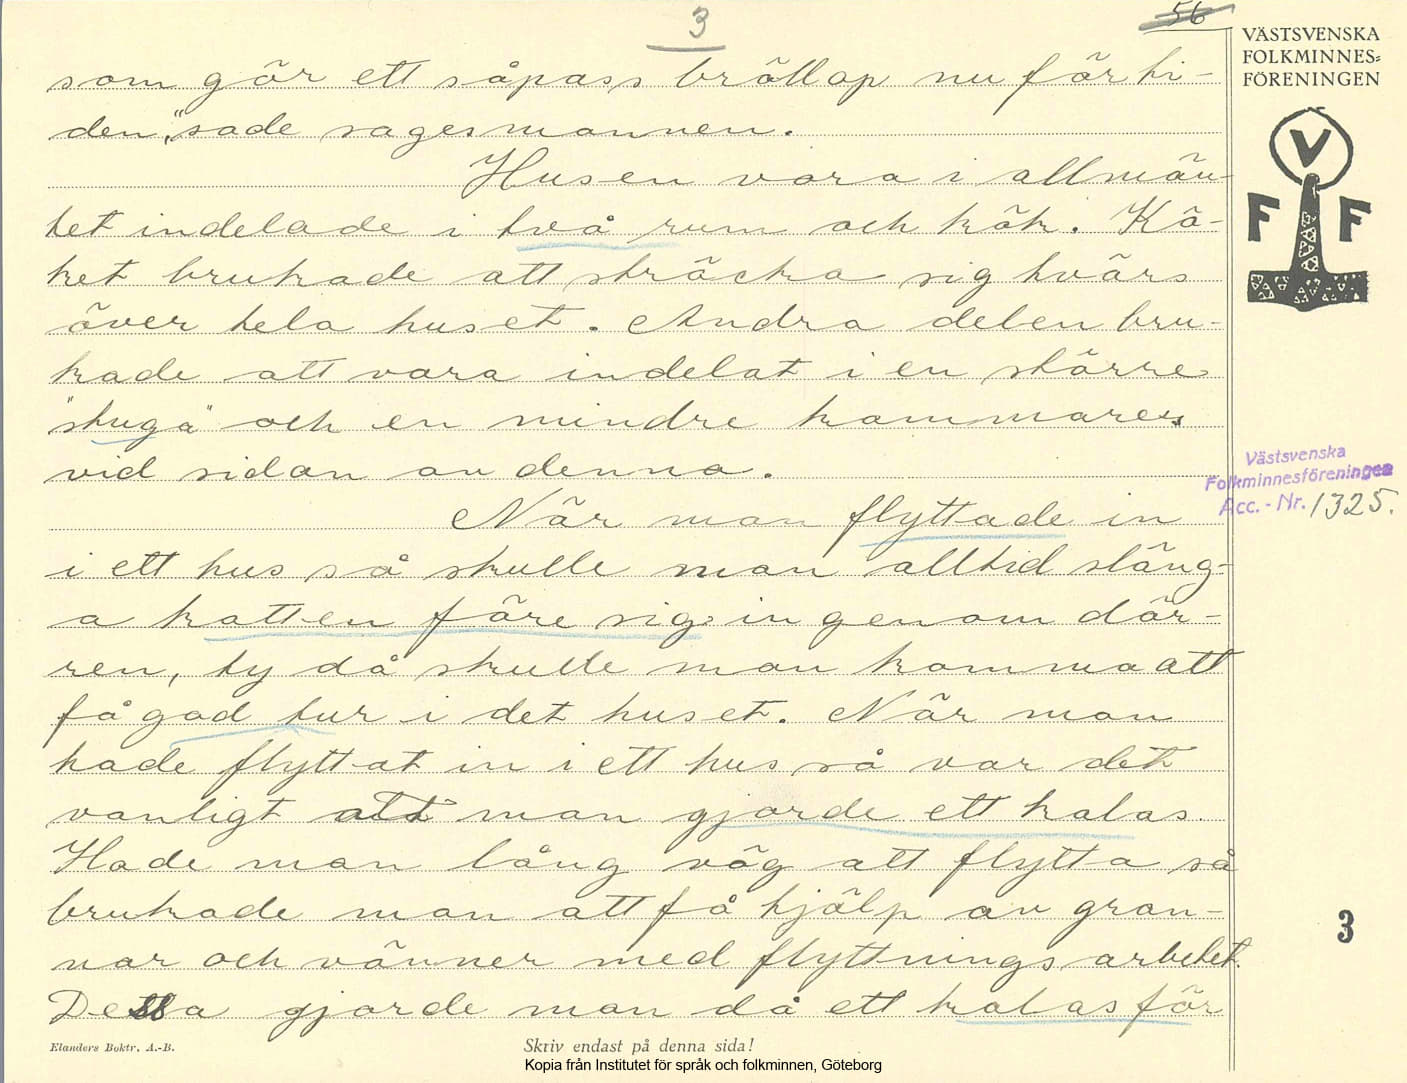 3
56
VÄSTSVENSKA
FOLKMINNES=
FÖRENINGEN
V
F F
som gör ett såpass bröllop nu för ti-
den," sade sagesmannen.
Husen vora i allmän-
het indelade i två rum och kök. Kö-
ket brukade att sträcka sig tvärs
över hela huset. Andra delen bru-
kade att vara indelat i en större
"stuga" och en mindre kammare
vid sidan av denna.
Västsvenska
Folkminnesföreningen
Acc. - Nr. 1325.
När man flyttade in
i ett hus så skulle man alltid släng-
a katten före sig in genom dör-
ren, ty då skulle man komma att
få god tur i det huset. När man
hade flyttat in i ett hus så var det
vanligt att man gjorde ett kalas.
Hade man lång väg att flytta så
brukade man att få hjälp av gran-
nar och vänner med flyttningsarbetet.
3
Dessa gjorde man då ett kalas för
Elanders Boktr. A.-B.
Skriv endast på denna sida!
Kopia från Institutet för språk och folkminnen, Göteborg